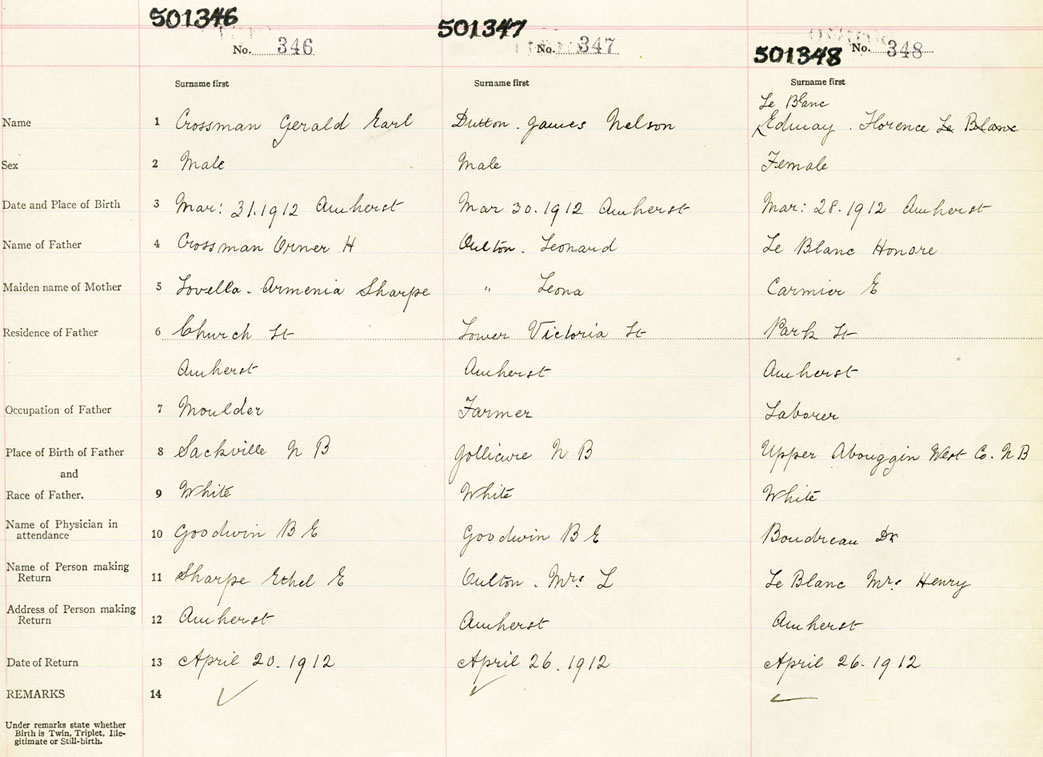 501346 501347 501348
No. 346 No. 347 No. 348
Surname first Surname first Surname first
Le Blanc
Name 1 Crossman Gerald Earl Dutton. James Nelson Edmay. Florence Le Blanc
Sex 2 Male Male Female
Date and Place of Birth 3 Mar: 31.1912 Amherst Mar 30.1912 Amherst Mar: 28.1912 Amherst
Name of Father 4 Crossman Orner H Oulton. Leonard Le Blanc Honore
Maiden name of Mother 5 Lovella. Armenia Sharpe " Leona Carmier E
Residence of Father 6 Church St Lower Victoria St Park St
Amherst Amherst Amherst
Occupation of Father 7 Moulder Farmer Laborer
Place of Birth of Father 8 Sackville N B Jollicure N B Upper Abouggin West Co. N B
and
Race of Father. 9 White White White
Name of Physician in
attendance 10 Goodwin B E Goodwin B E Boudreau Dr
Name of Person making
Return 11 Sharpe Ethel E Oulton. Mrs L Le Blanc Mrs Henry
Address of Person making
Return 12 Amherst Amherst Amherst
Date of Return 13 April 20.1912 April 26.1912 April 26.1912
REMARKS 14
Under remarks state whether
Birth is Twin, Triplet, Ille-
gitimate or Still-birth.